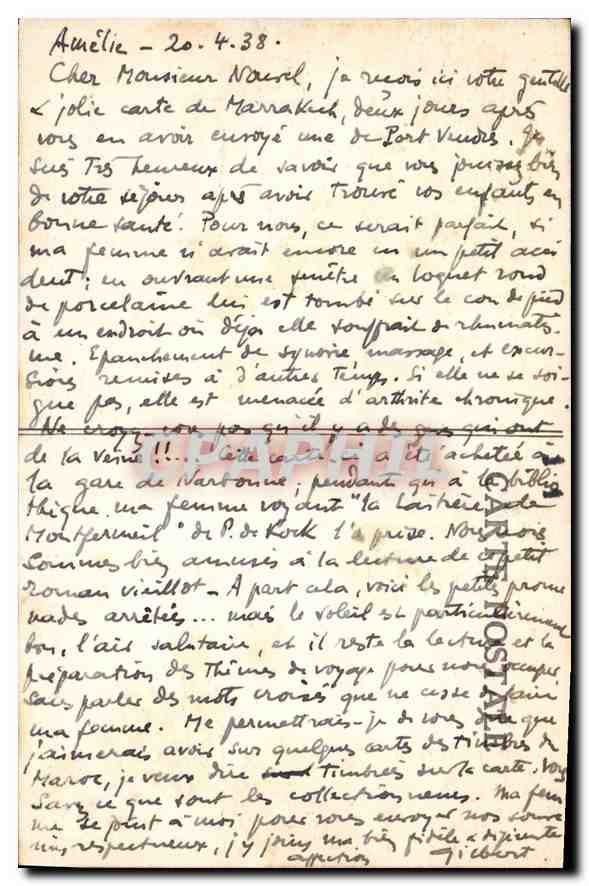 Amélie - 20.4.38.
Cher Monsieur Nourel, je reçois ici votre gentille
& jolie carte de Marrakech, deux jours après
vous en avoir envoyé une de Port Vendres. Je
suis très heureux de savoir que vous jouissez bien
de votre séjour après avoir trouvé vos enfants en
bonne santé. Pour nous, ce serait parfait, si
ma femme n'avait encore eu un petit acci
dent ; en ouvrant une fenêtre un loquet rond
de porcelaine lui est tombé sur le cou de pied
à un endroit où déjà elle souffrait de rhumatis-
me. Epanchement de synovie massage, et excur-
sions remises à d'autres temps. Si elle ne se soi-
gne pas, elle est menacée d'arthrite chronique.
Ne croyez-vous pas qu'il y a des gens qui ont
de la veine !!... Cette carte ci a été achetée à
la gare de Narbonne ; pendant qu'à la biblio
thèque ma femme voyant "la Laitière de
Montfermeil" de P. de Kock l'a prise. Nous nous
sommes bien amusés à la lecture de ce petit
roman vieillot - A part cela, voici les petites prome
nades arrêtées... mais le soleil est particulièrement
bon, l'air salutaire, et il reste la lecture et la
préparation des thèmes de voyage pour nous occuper
sans parler des mots croisés que ne cesse de faire
ma femme. Me permettrais-je de vous dire que
j'aimerais avoir sur quelques cartes des timbres du
Maroc, je veux dire timbrés sur la carte. Vous
savez ce que sont les collectionneurs. Ma fem
me se joint à moi pour vous envoyer nos souve
nirs respectueux, j'y joins ma bien fidèle &
affection Gilbert.
CARTE POSTALE
CPAPHIL